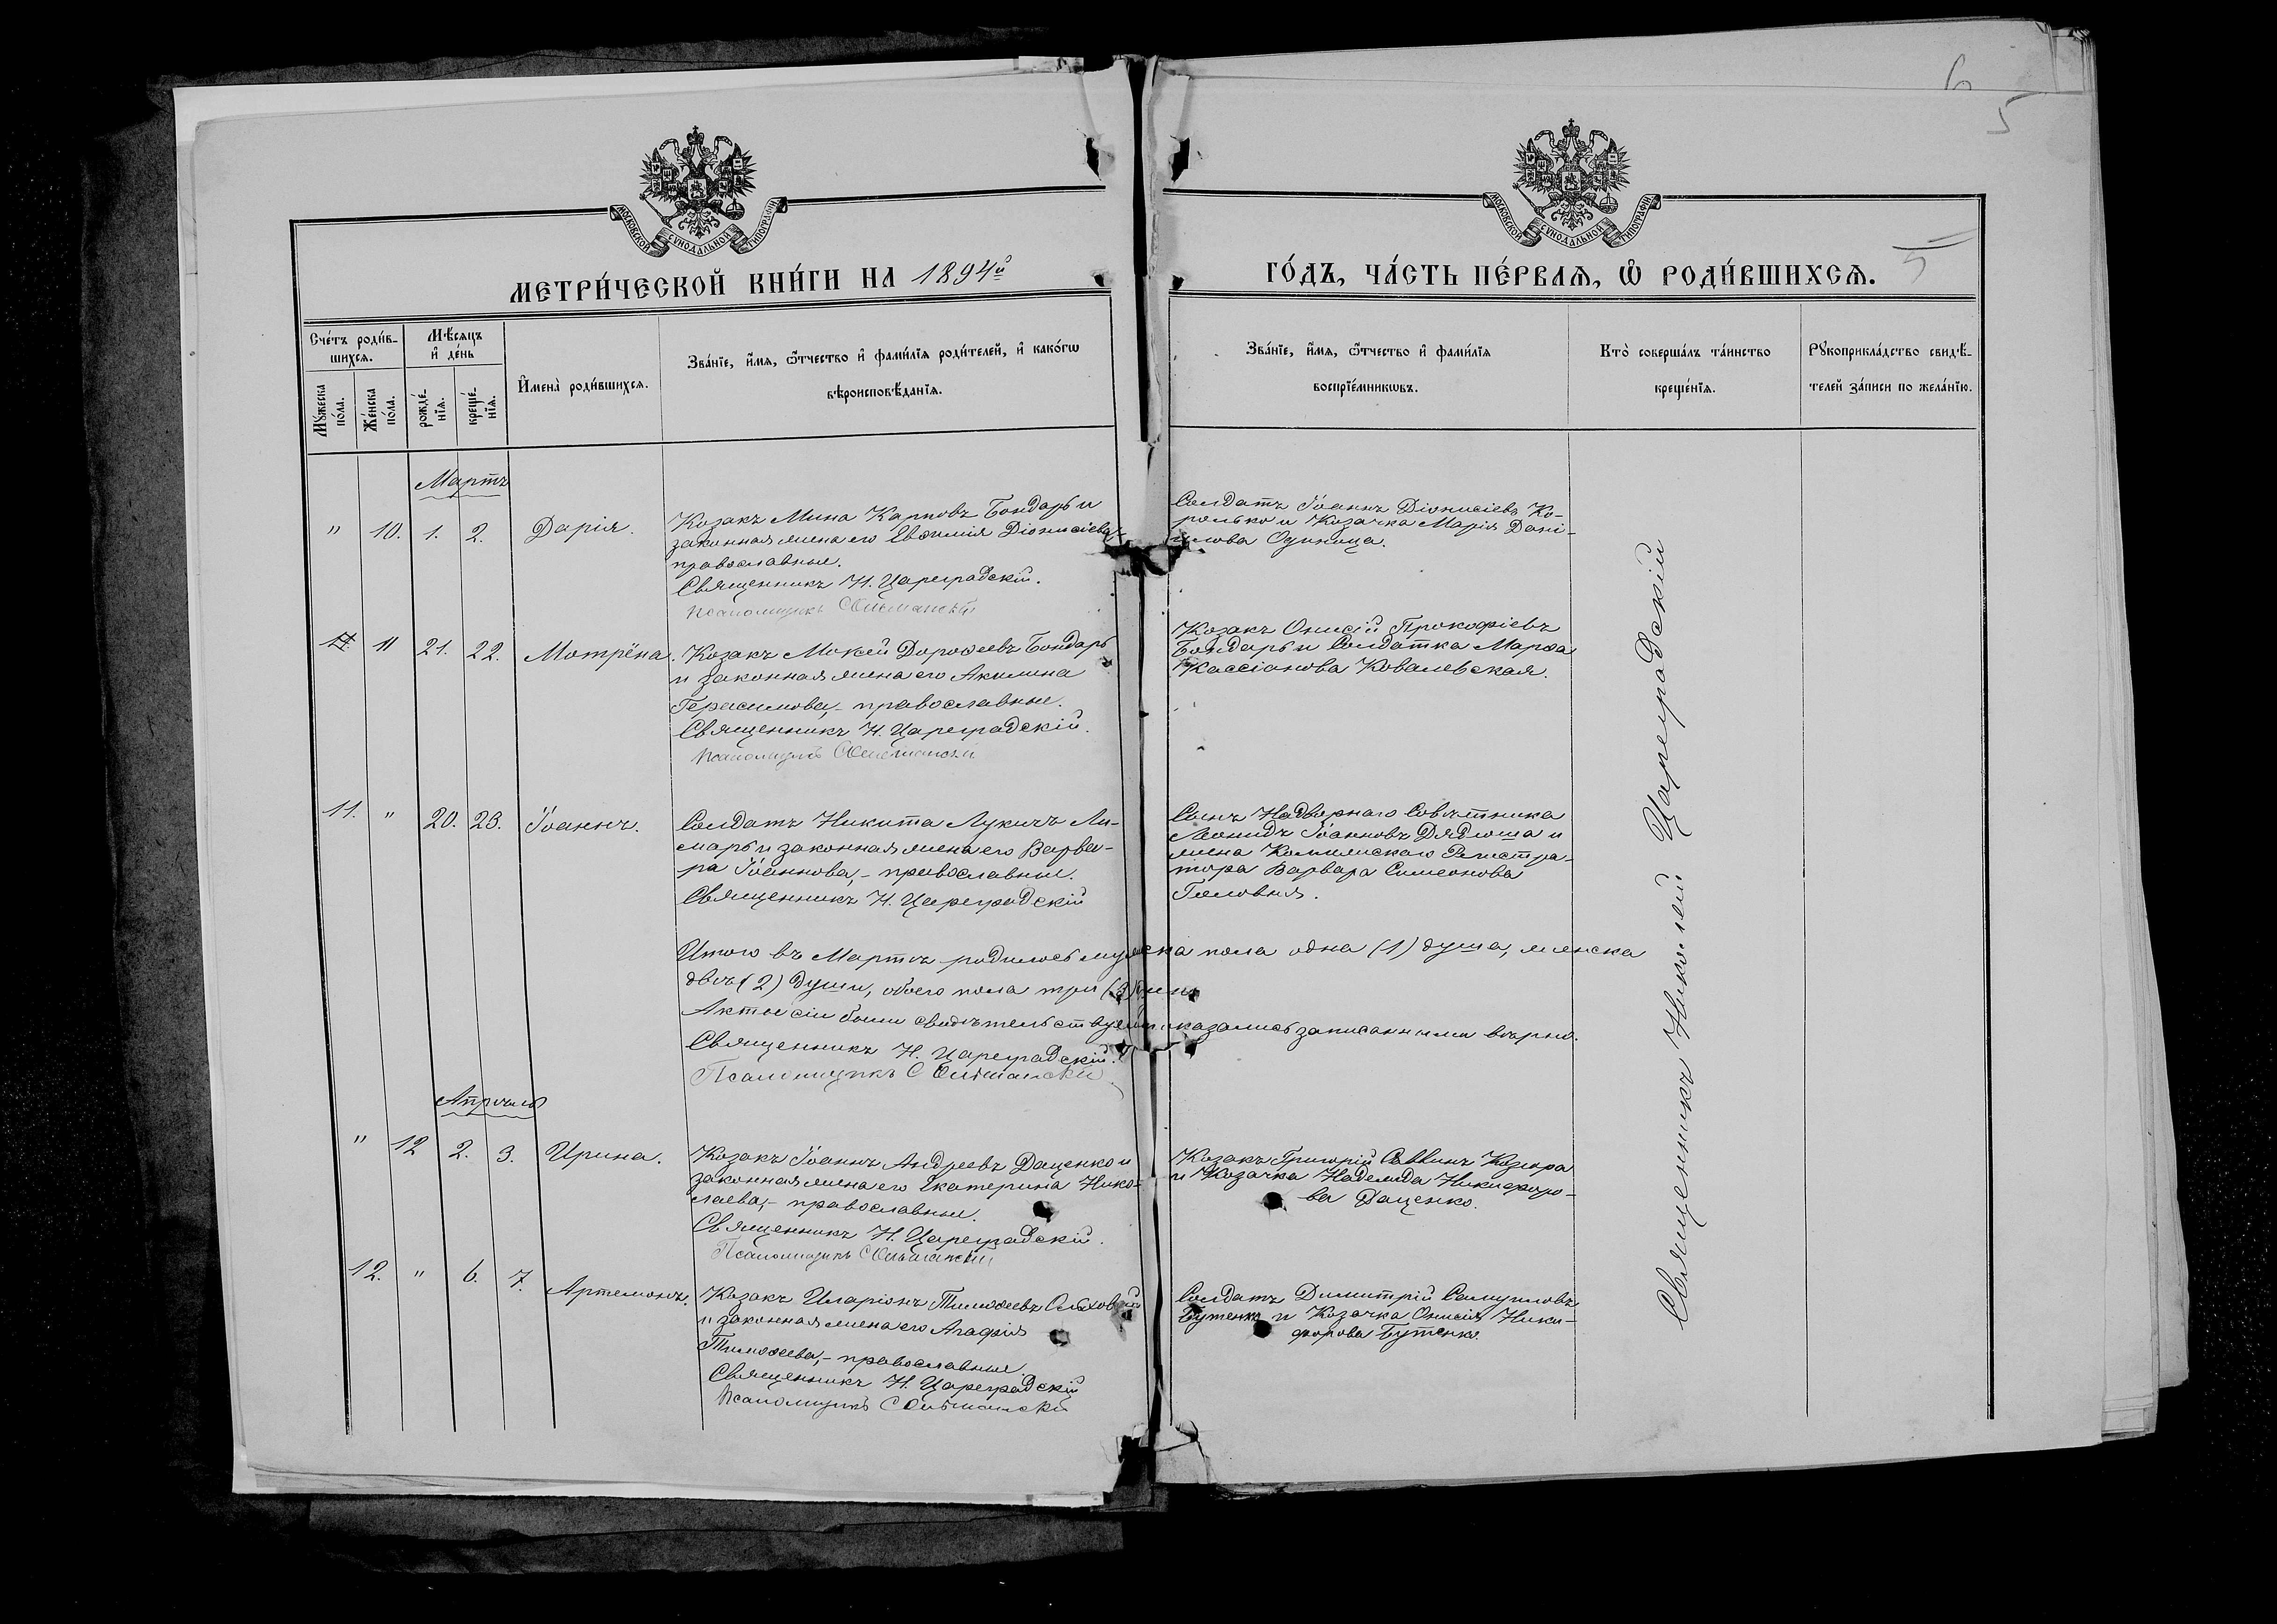 6
5
МОСКОВСКОЙ СѴНОДАЛЬНОЙ ТИПОГРАФІИ
МОСКОВСКОЙ СѴНОДАЛЬНОЙ ТИПОГРАФІИ
МЕТРИ́ЧЕСКОЙ КНИ́ГИ НА 1894й
ГО́ДЪ, ЧА́СТЬ ПЕ́РВАЯ, Ѡ҆ РОДИ́ВШИХСЯ.
5
Сче́тъ роди́в-
шихся.
Мꙋжеска по́ла.
Же́нска по́ла.
Мѣ́сяцъ
и҆ де́нь
рожде́-
нїя.
креще́-
нїя.
И҆мена̀ роди́вшихся.
Зва́нїе, и҆́мя, ѻ҆́тчество и҆ фами́лїя роди́телей, и҆ како́гѡ
вѣроисповѣ́данїя.
Зва́нїе, и҆́мя, ѻ҆́тчество и҆ фами́лїя
воспрїе́мникѡвъ.
Кто̀ соверша́лъ та́инство
креще́нїя.
Рꙋкоприкла́дство свидѣ́-
телей за́писи по жела́нїю.
Мартъ
" 10. 1. 2. Дарія.
Козакъ Мина Карповъ Бондарь и
законная жена его Евѳимія Діонисіева,-
православные.
Священникъ Н. Цареградскій.
Псаломщикъ С Ольшанскій
Солдатъ Іоаннъ Діонисіевъ Ко-
ролько и Козачка Марія Дані-
илова Одиноца.
11 21. 22. Мотрёна.
Козакъ Мокей Дороѳеевъ Бондарь
и законная жена его Акилина
Герасимова,- православные.
Священникъ Н. Цареградскій.
Псаломщикъ С Ольшанскій
Козакъ Онисій Прокофіевъ
Бондарь и Солдатка Марѳа
Кассіанова Ковалевская.
11. " 20. 23. Іоаннъ.
Солдатъ Никита Лукичъ Ли-
марь и законная жена его Варва-
ра Іоаннова,- православные.
Священникъ Н. Цареградскій
Сынъ Надворнаго Совѣтника
Леонидъ Іоанновъ Дядюша и
жена Коллежскаго Регистра-
тора Варвара Симеонова
Головня.
Итого въ Мартѣ родилось мужска пола одна (1) душа, женска
двѣ (2) души, обоего пола три (3) души
Акты сіи были свидѣтельствуемы и оказались записанными вѣрно.
Священникъ Н. Цареградскій.
Псаломщикъ С Ольшанскій
Апрѣль
" 12 2. 3. Ирина.
Козакъ Іоаннъ Андреевъ Даценко и
законная жена его Екатерина Нико-
лаева,- православные.
Священникъ Н. Цареградскій.
Псаломщикъ С Ольшанскій
Козакъ Григорій Саввинъ
и Козачка Надежда Никифоро-
ва Даценко.
12. " 6. 7. Артемонъ.
Козакъ Иларіонъ Тимоѳеевъ
и законная жена его Агафія
Тимоѳеева,- православные.
Священникъ Н. Цареградскій
Псаломщикъ С Ольшанскій
Солдатъ Димитрій Самуиловъ
Бутенко и Козачка Онисія Ники-
форова Бутенко.
Священникъ Николай Цареградскій